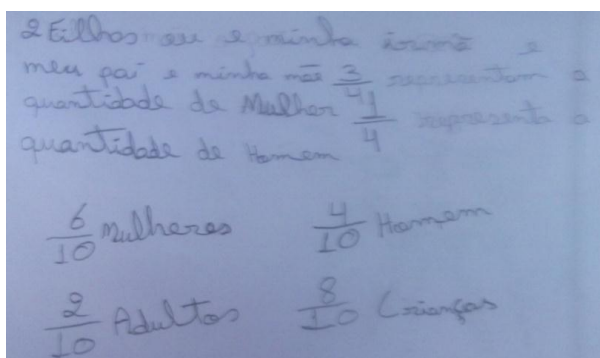 2 Filhos eu e minha irmã e
meu pai e minha mãe 3/4 representam a
quantidade de Mulher 1/4 representa a
quantidade de Homem
6/10 Mulheres 4/10 Homem
2/10 Adultos 8/10 Crianças